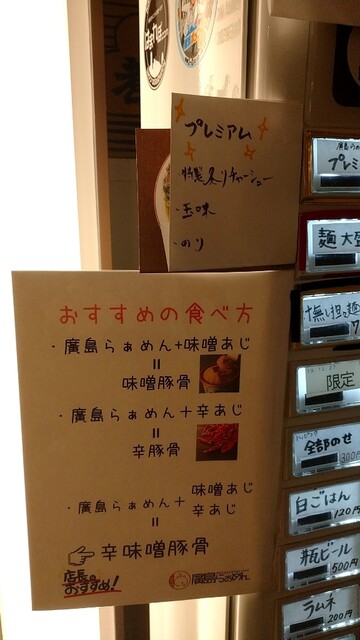 プレミアム
・特製炙りチャーシュー
・玉味
・のり
おすすめの食べ方
・廣島らぁめん+味噌あじ
=
味噌豚骨
・廣島らぁめん+辛あじ
=
辛豚骨
・廣島らぁめん+味噌あじ
辛あじ
=
辛味噌豚骨
店長の
おすすめ!
廣島らぁめん
廣島らぁめ
プレミ
麺大盛
汁無し担々麺
限定
トッピング
全部のせ
300円
白ごはん
120円
瓶ビール
500円
ラムネ
200円